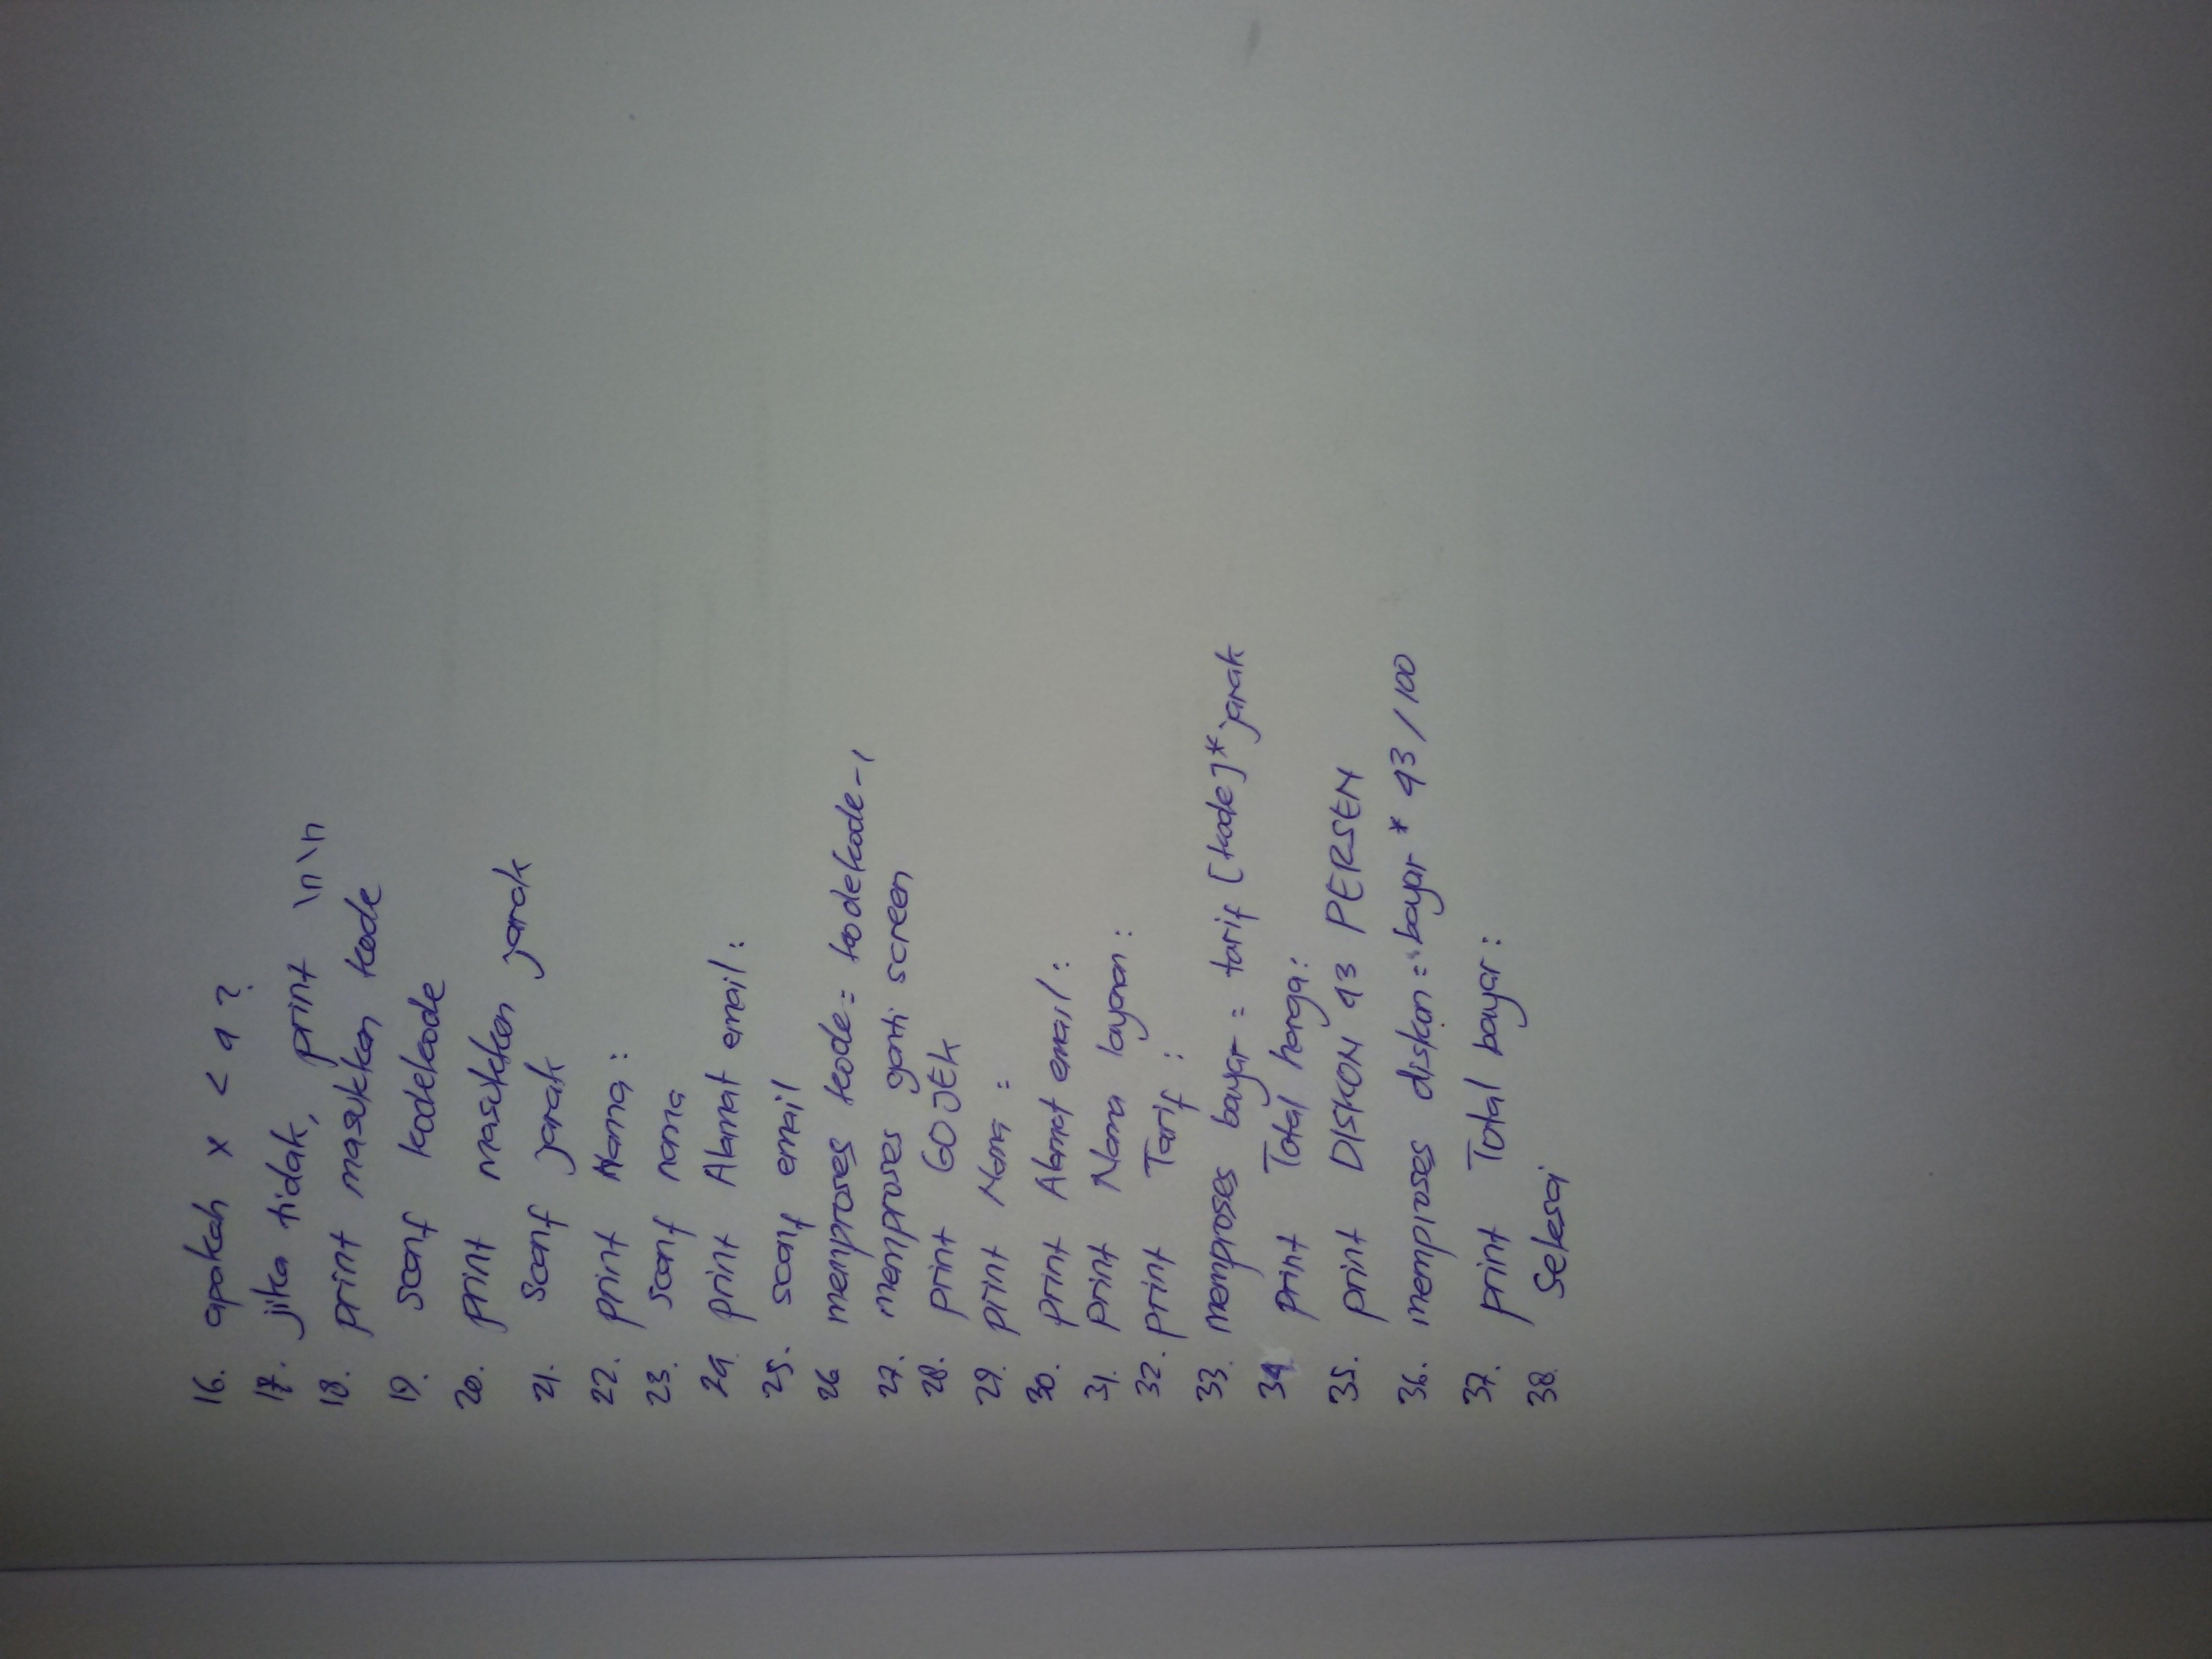 16. apakah x < 4 ?
17. jika tidak, print \n\n
18. print masukkan kode
19. scanf kodekode
20. print masukkan jarak
21. scanf jarak
22. print Nama :
23. scanf nama
24. print Alamat email :
25. scanf email
26 memproses kode = kodekode - 1
27. memproses ganti screen
28. print GOJEK
29. print Nama :
30. print Alamat email :
31. print Nama layanan :
32. print Tarif :
33. memproses bayar = tarif [kode] * jarak
34 print Total harga :
35. print DISKON 43 PERSEN
36. memproses diskon = bayar * 43 / 100
37. print Total bayar :
38. Selesai